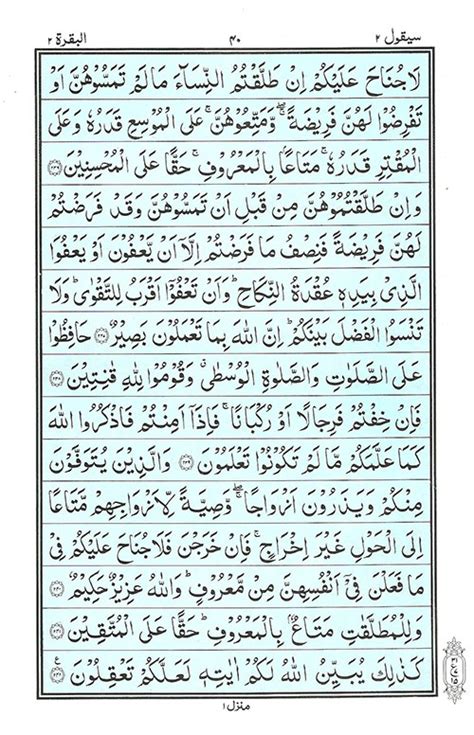 سيقول ٢ ٤٠ البقرة ٢
لَاجُنَاحَ عَلَيْكُمْ اِنْ طَلَّقْتُمُ النِّسَآءَ مَا لَمْ تَمَسُّوْهُنَّ اَوْ
تَفْرِضُوْا لَهُنَّ فَرِيْضَةً ۚۖ وَّمَتِّعُوْهُنَّ ۚ عَلَى الْمُوْسِعِ قَدَرُهٗ وَعَلَى
الْمُقْتِرِ قَدَرُهٗ ۚ مَتَاعًۢا بِالْمَعْرُوْفِ ۚ حَقًّا عَلَى الْمُحْسِنِيْنَ ﴿٢٣٦﴾
وَاِنْ طَلَّقْتُمُوْهُنَّ مِنْ قَبْلِ اَنْ تَمَسُّوْهُنَّ وَقَدْ فَرَضْتُمْ
لَهُنَّ فَرِيْضَةً فَنِصْفُ مَا فَرَضْتُمْ اِلَّآ اَنْ يَّعْفُوْنَ اَوْ يَعْفُوَا
الَّذِيْ بِيَدِهٖ عُقْدَةُ النِّكَاحِ ؕ وَاَنْ تَعْفُوْٓا اَقْرَبُ لِلتَّقْوٰى ؕ وَلَا
تَنْسَوُا الْفَضْلَ بَيْنَكُمْ ؕ اِنَّ اللّٰهَ بِمَا تَعْمَلُوْنَ بَصِيْرٌ ﴿٢٣٧﴾ حَافِظُوْا
عَلَى الصَّلَوٰتِ وَالصَّلٰوةِ الْوُسْطٰى ۗ وَقُوْمُوْا لِلّٰهِ قٰنِتِيْنَ ﴿٢٣٨﴾
فَاِنْ خِفْتُمْ فَرِجَالًا اَوْ رُكْبَانًا ۚ فَاِذَآ اَمِنْتُمْ فَاذْكُرُوا اللّٰهَ
كَمَا عَلَّمَكُمْ مَّا لَمْ تَكُوْنُوْا تَعْلَمُوْنَ ﴿٢٣٩﴾ وَالَّذِيْنَ يُتَوَفَّوْنَ
مِنْكُمْ وَيَذَرُوْنَ اَزْوَاجًا ۚۖ وَّصِيَّةً لِّاَزْوَاجِهِمْ مَّتَاعًا
اِلَى الْحَوْلِ غَيْرَ اِخْرَاجٍ ۚ فَاِنْ خَرَجْنَ فَلَاجُنَاحَ عَلَيْكُمْ فِيْ
مَا فَعَلْنَ فِيْٓ اَنْفُسِهِنَّ مِنْ مَّعْرُوْفٍ ؕ وَاللّٰهُ عَزِيْزٌ حَكِيْمٌ ﴿٢٤٠﴾
وَلِلْمُطَلَّقٰتِ مَتَاعٌۢ بِالْمَعْرُوْفِ ؕ حَقًّا عَلَى الْمُتَّقِيْنَ ﴿٢٤١﴾
كَذٰلِكَ يُبَيِّنُ اللّٰهُ لَكُمْ اٰيٰتِهٖ لَعَلَّكُمْ تَعْقِلُوْنَ ﴿٢٤٢﴾
منزل ١